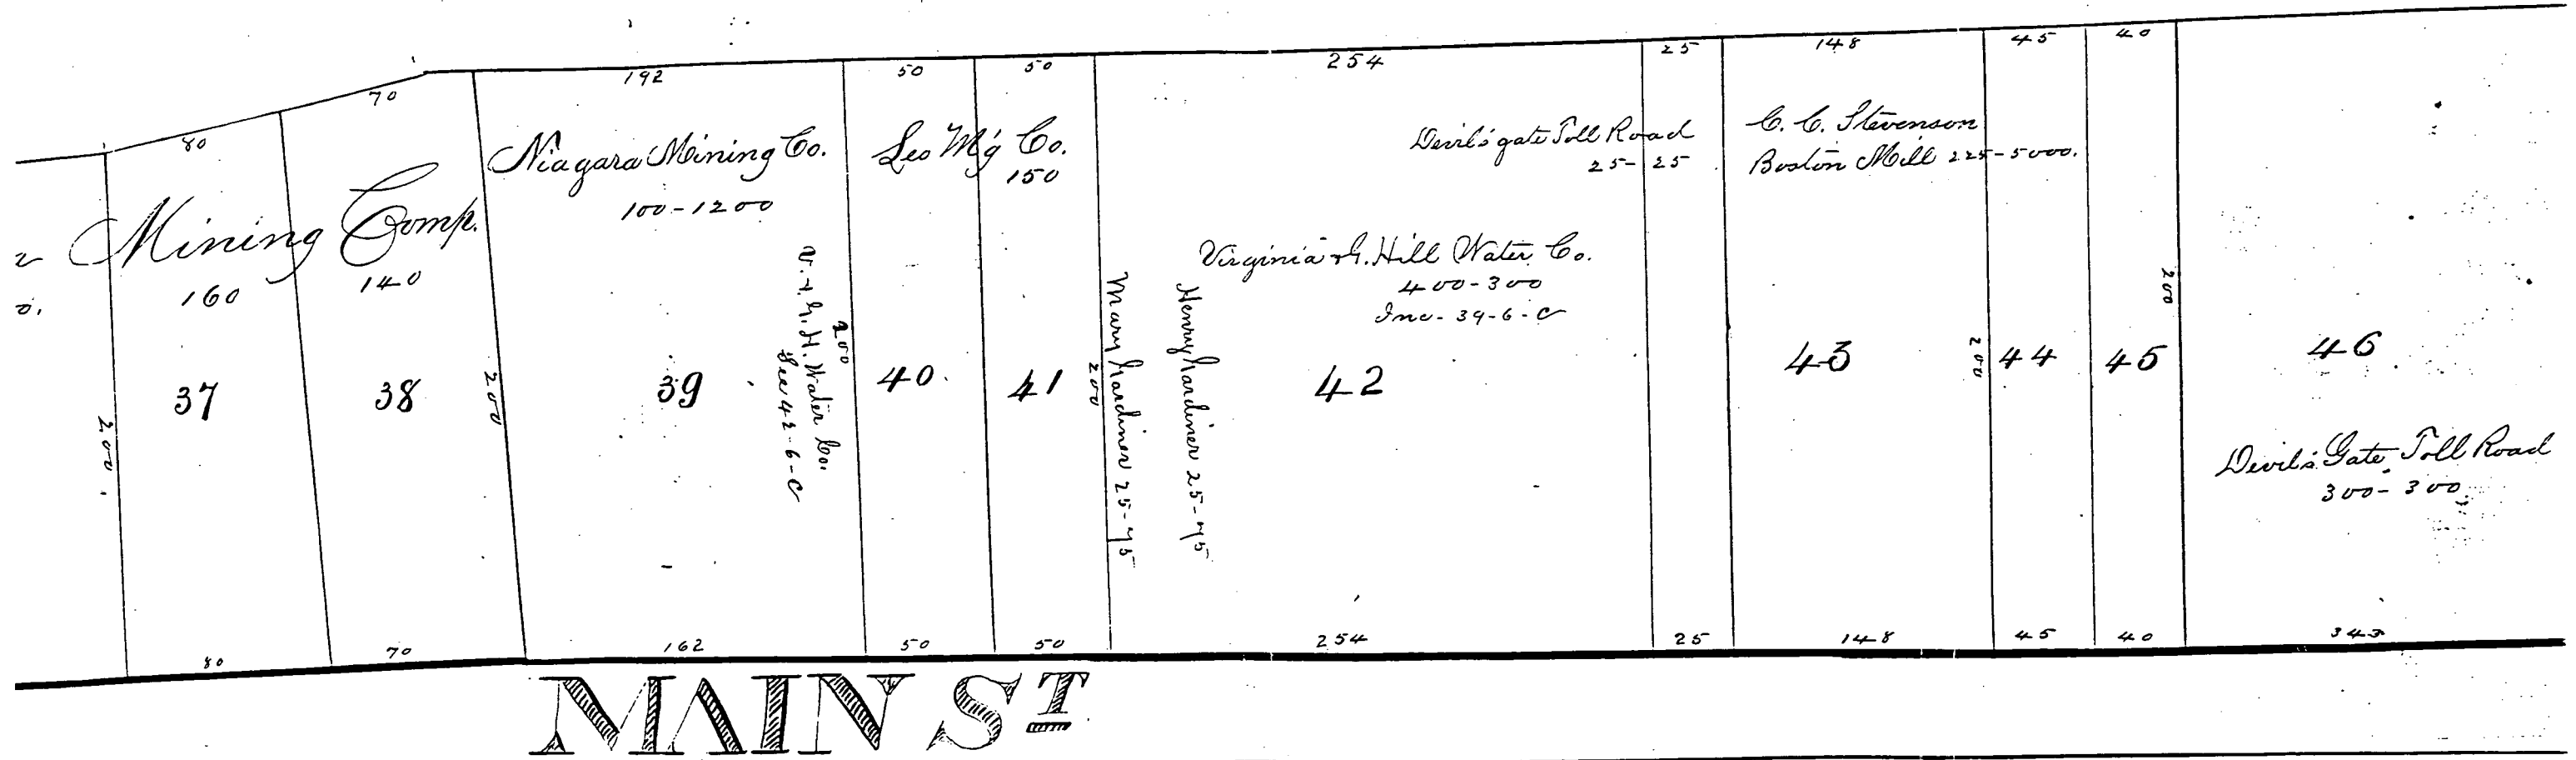 80
70
192
50
50
254
25
148
45
40
Mining Comp.
160
140
Niagara Mining Co.
100-1200
Leo M'g Co.
150
Devil's gate Toll Road
25-25
C. C. Stevenson
Boston Mill 225-5000.
Virginia & G. Hill Water Co.
400-300
Inc- 39-6-C
V. & G. H. Water Co.
See 42-6-C
Mary Hardiner 25-75
Henry Hardiner 25-75
37
38
39
40
41
42
43
44
45
46
200
200
200
200
200
200
Devil's Gate Toll Road
300-300
80
70
162
50
50
254
25
148
45
40
343
MAIN ST